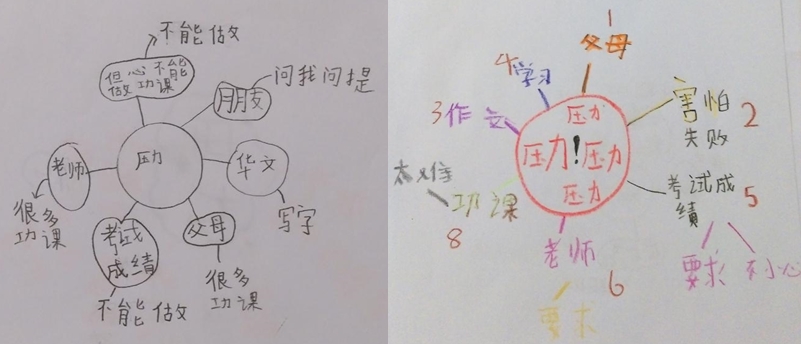 不能做
但心不能
做功课
朋友
问我问提
压力
华文
写字
老师
很多
功课
考试
成绩
不能做
父母
很多
功课
1
父母
4学习
3作文
压力
压力!压力
压力
害怕
失败
2
考试成
绩
5
要求
太难
功课
8
老师
6
要求